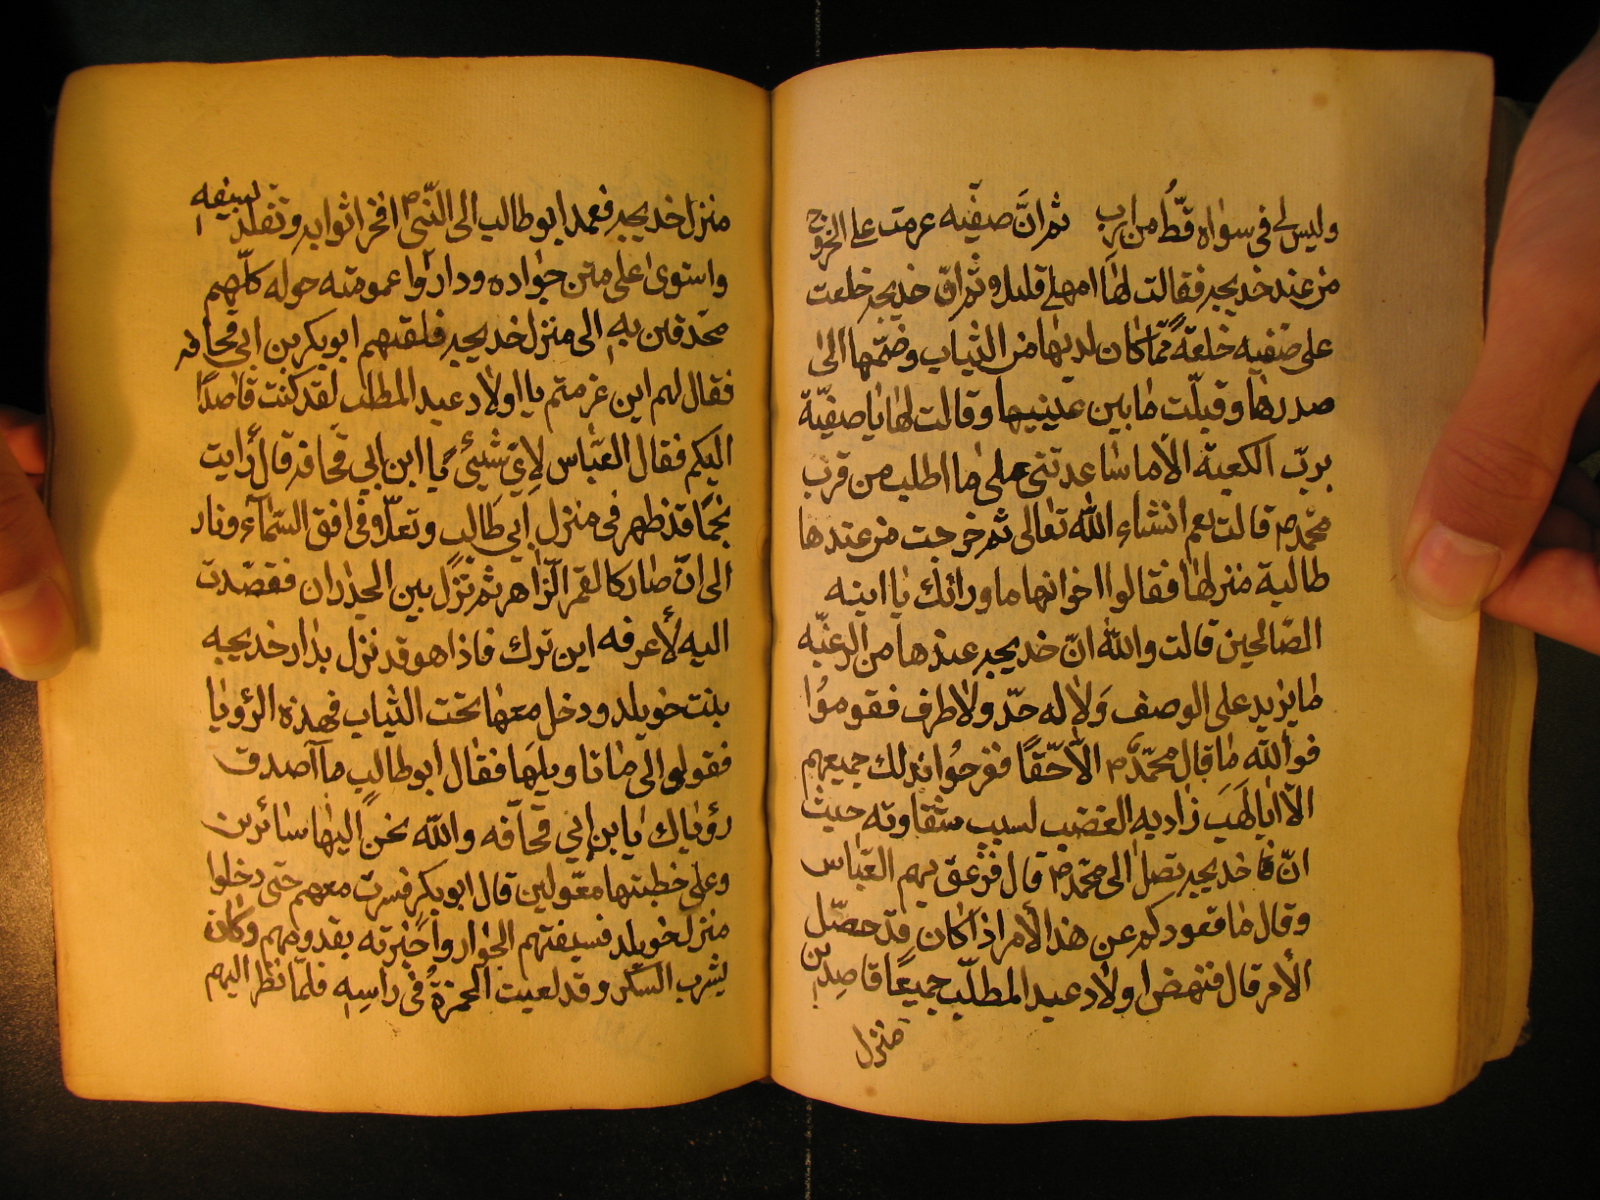 وليس لي في سواه قطُّ من ارب ثم انَّ صفيّه عزمت على الخروج
من عند خديجه فقالت لها امهلي قليلا وثم انّ خديجه خلعت
على صفيه خلعةً ممّا كان لديها من الثياب وضمّها الى
صدرها وقبلّت ما بين عينيها وقالت لها يا صفيّة
بربّ الكعبة الاّ ما ساعدتني على ما اطلب من قرب
محمد ص قالت نعم انشاء الله تعالى ثم خرجت من عندها
طالبة منزلها فقالوا اخوانها ما ورائك يا ابنه
الصّالحين قالت والله انّ خديجه عندها من الرغبّه
ما يزيد على الوصف وَلا له حدّ ولا طرف فقوموُا
فو الله ما قال محمّد ص الاّ حّقًا ففرحوُا بذلك جميعهم
الاّ ابا لَهَب زاد به الغضب لسبب شقاوته حيث
انّ خديجه تصل الى محمد ص قال فزعق بهم العبّاس
وقال ما قعودكم عن هذا الأمر اذا كان قد حصّل
الأمر قال فنهض اولاد عبد المطلّب جميعًا قاصدين
منزل
منزل خديجه فعمد ابو طالب الى النّبي ص افخر اثوابه وتقلد لسيفه
واستوى على متن جواده ودارَوا عمومته حوله كلّهم
محدقين به الى منزل خديجه فلقيهم ابو بكر بن ابي قحافه
فقال لهم اين عزمتم يا اولاد عبد المطلب لقد كنت قاصدًا
اليكم فقال العبّاس لايّ شيئ يا ابن ابي قحافه قال رأيت
نجمًا قد ظهر في منزل ابي طالب وتعلّو في افق السّمآء ونار
الى انّ صار كالقمر الزّاهر ثم نزل بين الجدران فقصّدت
اليه لأعرفه اين ترك فاذا هو قد نزل بدار خديجه
بنت خويلد ودخل معها تحت الثياب فهذه الرؤيا
فقولوا الى ما تاويلها فقال ابو طالب ما آصدق
رؤياك يا بن ابي قحافه والله نحن اليها سائرين
وعلى خطبتها معوّلين قال ابو بكر فسرت معهم حتى دخلوا
منزل خويلد فسبقتهم الجوار واخبرته بقدومهم وكان
يشرب السكر وقد لعبت الخمرة في راسه فلمّا نظر اليهم